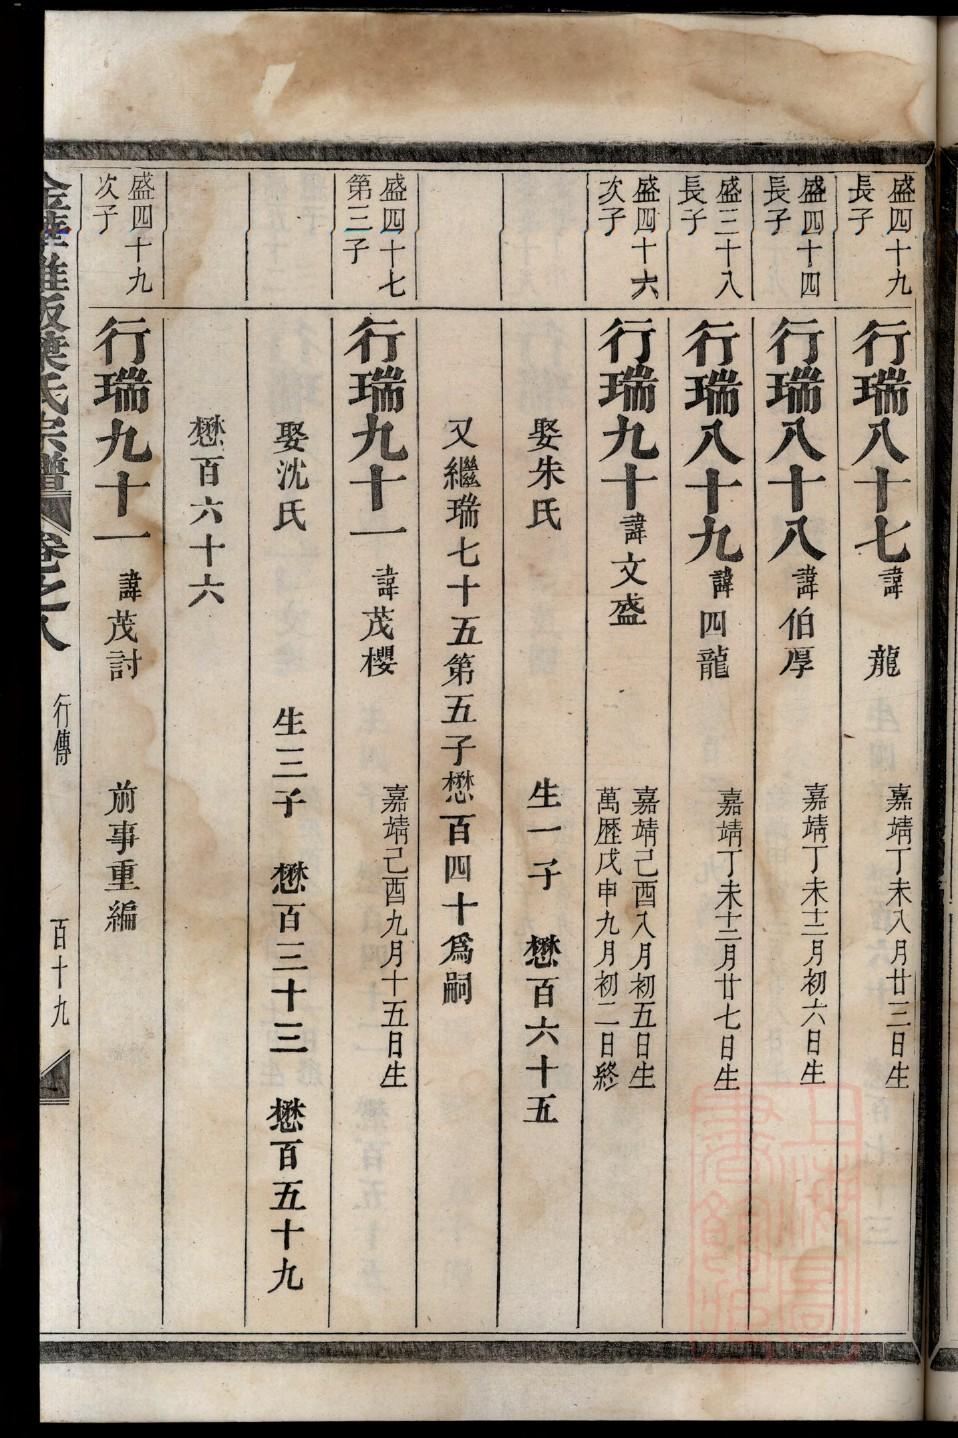 盛四十九
長子
行瑞八十七諱 龍 嘉靖丁未八月廿三日生
盛四十四
長子
行瑞八十八諱伯厚 嘉靖丁未十二月初六日生
盛三十八
長子
行瑞八十九諱四龍 嘉靖丁未十二月廿七日生
盛四十六
次子
行瑞九十諱文盛 嘉靖己酉八月初五日生
萬歷戊申九月初二日終
娶朱氏 生一子 懋百六十五
又繼瑞七十五第五子懋百四十爲嗣
盛四十七
第三子
行瑞九十一諱茂櫻 嘉靖己酉九月十五日生
娶沈氏 生三子 懋百三十三 懋百五十九
懋百六十六
盛四十九
次子
行瑞九十一諱茂討 前事重編
葉氏宗譜 卷之八 行傳 百十九